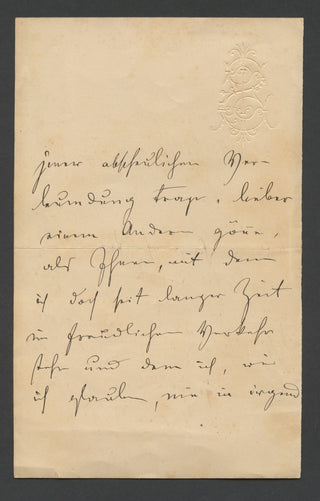 jener abscheulichen Ver-
leumdung trage, lieber
einem Andern gönne,
als Ihnen, mit dem
ich doch seit langer Zeit
in freundlichem Verkehr
stehe und dem ich, wie
ich glaube, nie in irgend